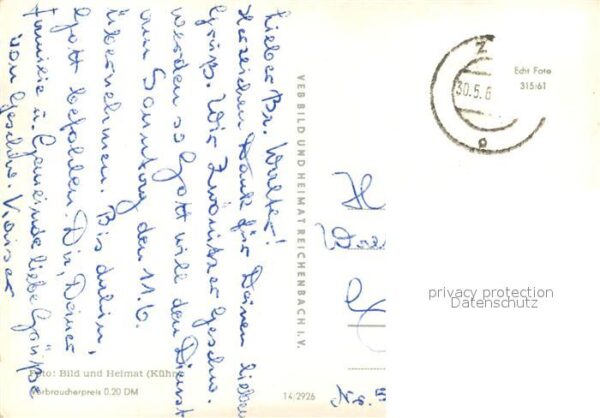 Lieber Br. Walter!
Herzlichen Dank für Deinen lieben
Gruß. Wir Zwönitzer Geschw.
werden so Gott will den Dienst
am Sonntag den 11.6.
übernehmen. Bis dahin,
Gott befohlen. Dir, Deiner
Familie u. Gemeinde liebe Grüße
von Geschw. Kaiser
VEB BILD UND HEIMAT REICHENBACH I. V.
Foto: Bild und Heimat (Kühn)
Verbraucherpreis 0,20 DM
14/2926
Echt Foto
315/61
30.5.6
privacy protection
Datenschutz